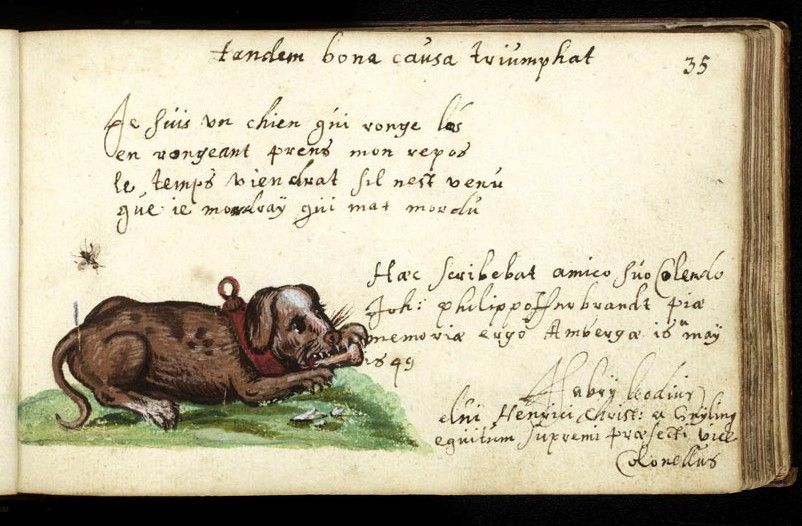 tandem bona causa triumphat
35
Je suis un chien qui ronge los
en rongeant prens mon repos
le temps viendrat sil nest venu
que ie mordray qui mat mordu
Hæc scribebat amico suo Colendo
Joh: philippo piæ
memoriæ ergo Ambergæ is may
1649
Henrici Christ: a
equitum supremi præfecti vice
Colonellus